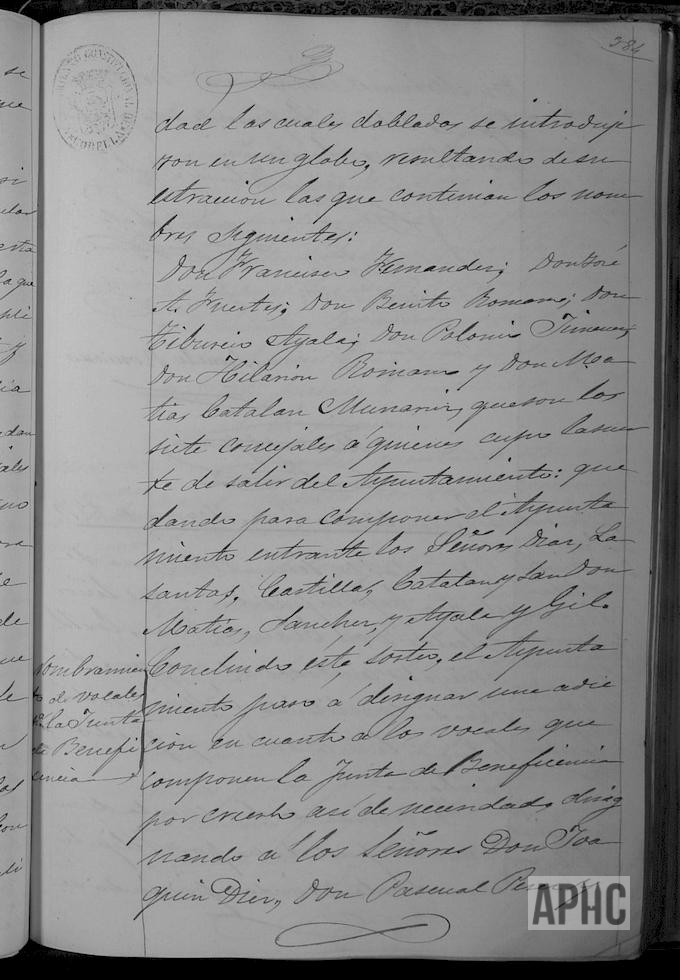 384
dad las cuales dobladas se introduje
ron en un globo, resultando de su
estraccion las que continian los nom
bres siguientes:
Don Francisco Hernandez; Don José
A. Fuertes; Don Benito Romano; Don
Tiburcio Ayala; Don Polonio Timenez;
Don Hilarion Romano y Don Ma
tias Catalan Munarriz, que son los
siete concejales á quienes cupo la suer
te de salir del Ayuntamiento: que
dando para componer el Ayunta
miento entrante los Señores Diaz, La
santas, Castilla, Catalan y San Don
Matias, Sanchez, y Ayala y Gil.
Concluido este sorteo, el Ayunta
miento paso á designar una adic
cion en cuanto á los vocales que
componen la Junta de Beneficencia
por creerlo asi de necesidad, desig
nando á los Señores Don Joa
quin Diez, Don Pascual
Nombramien
to de vocales
de la Junta
de Benefi
cencia
APHC